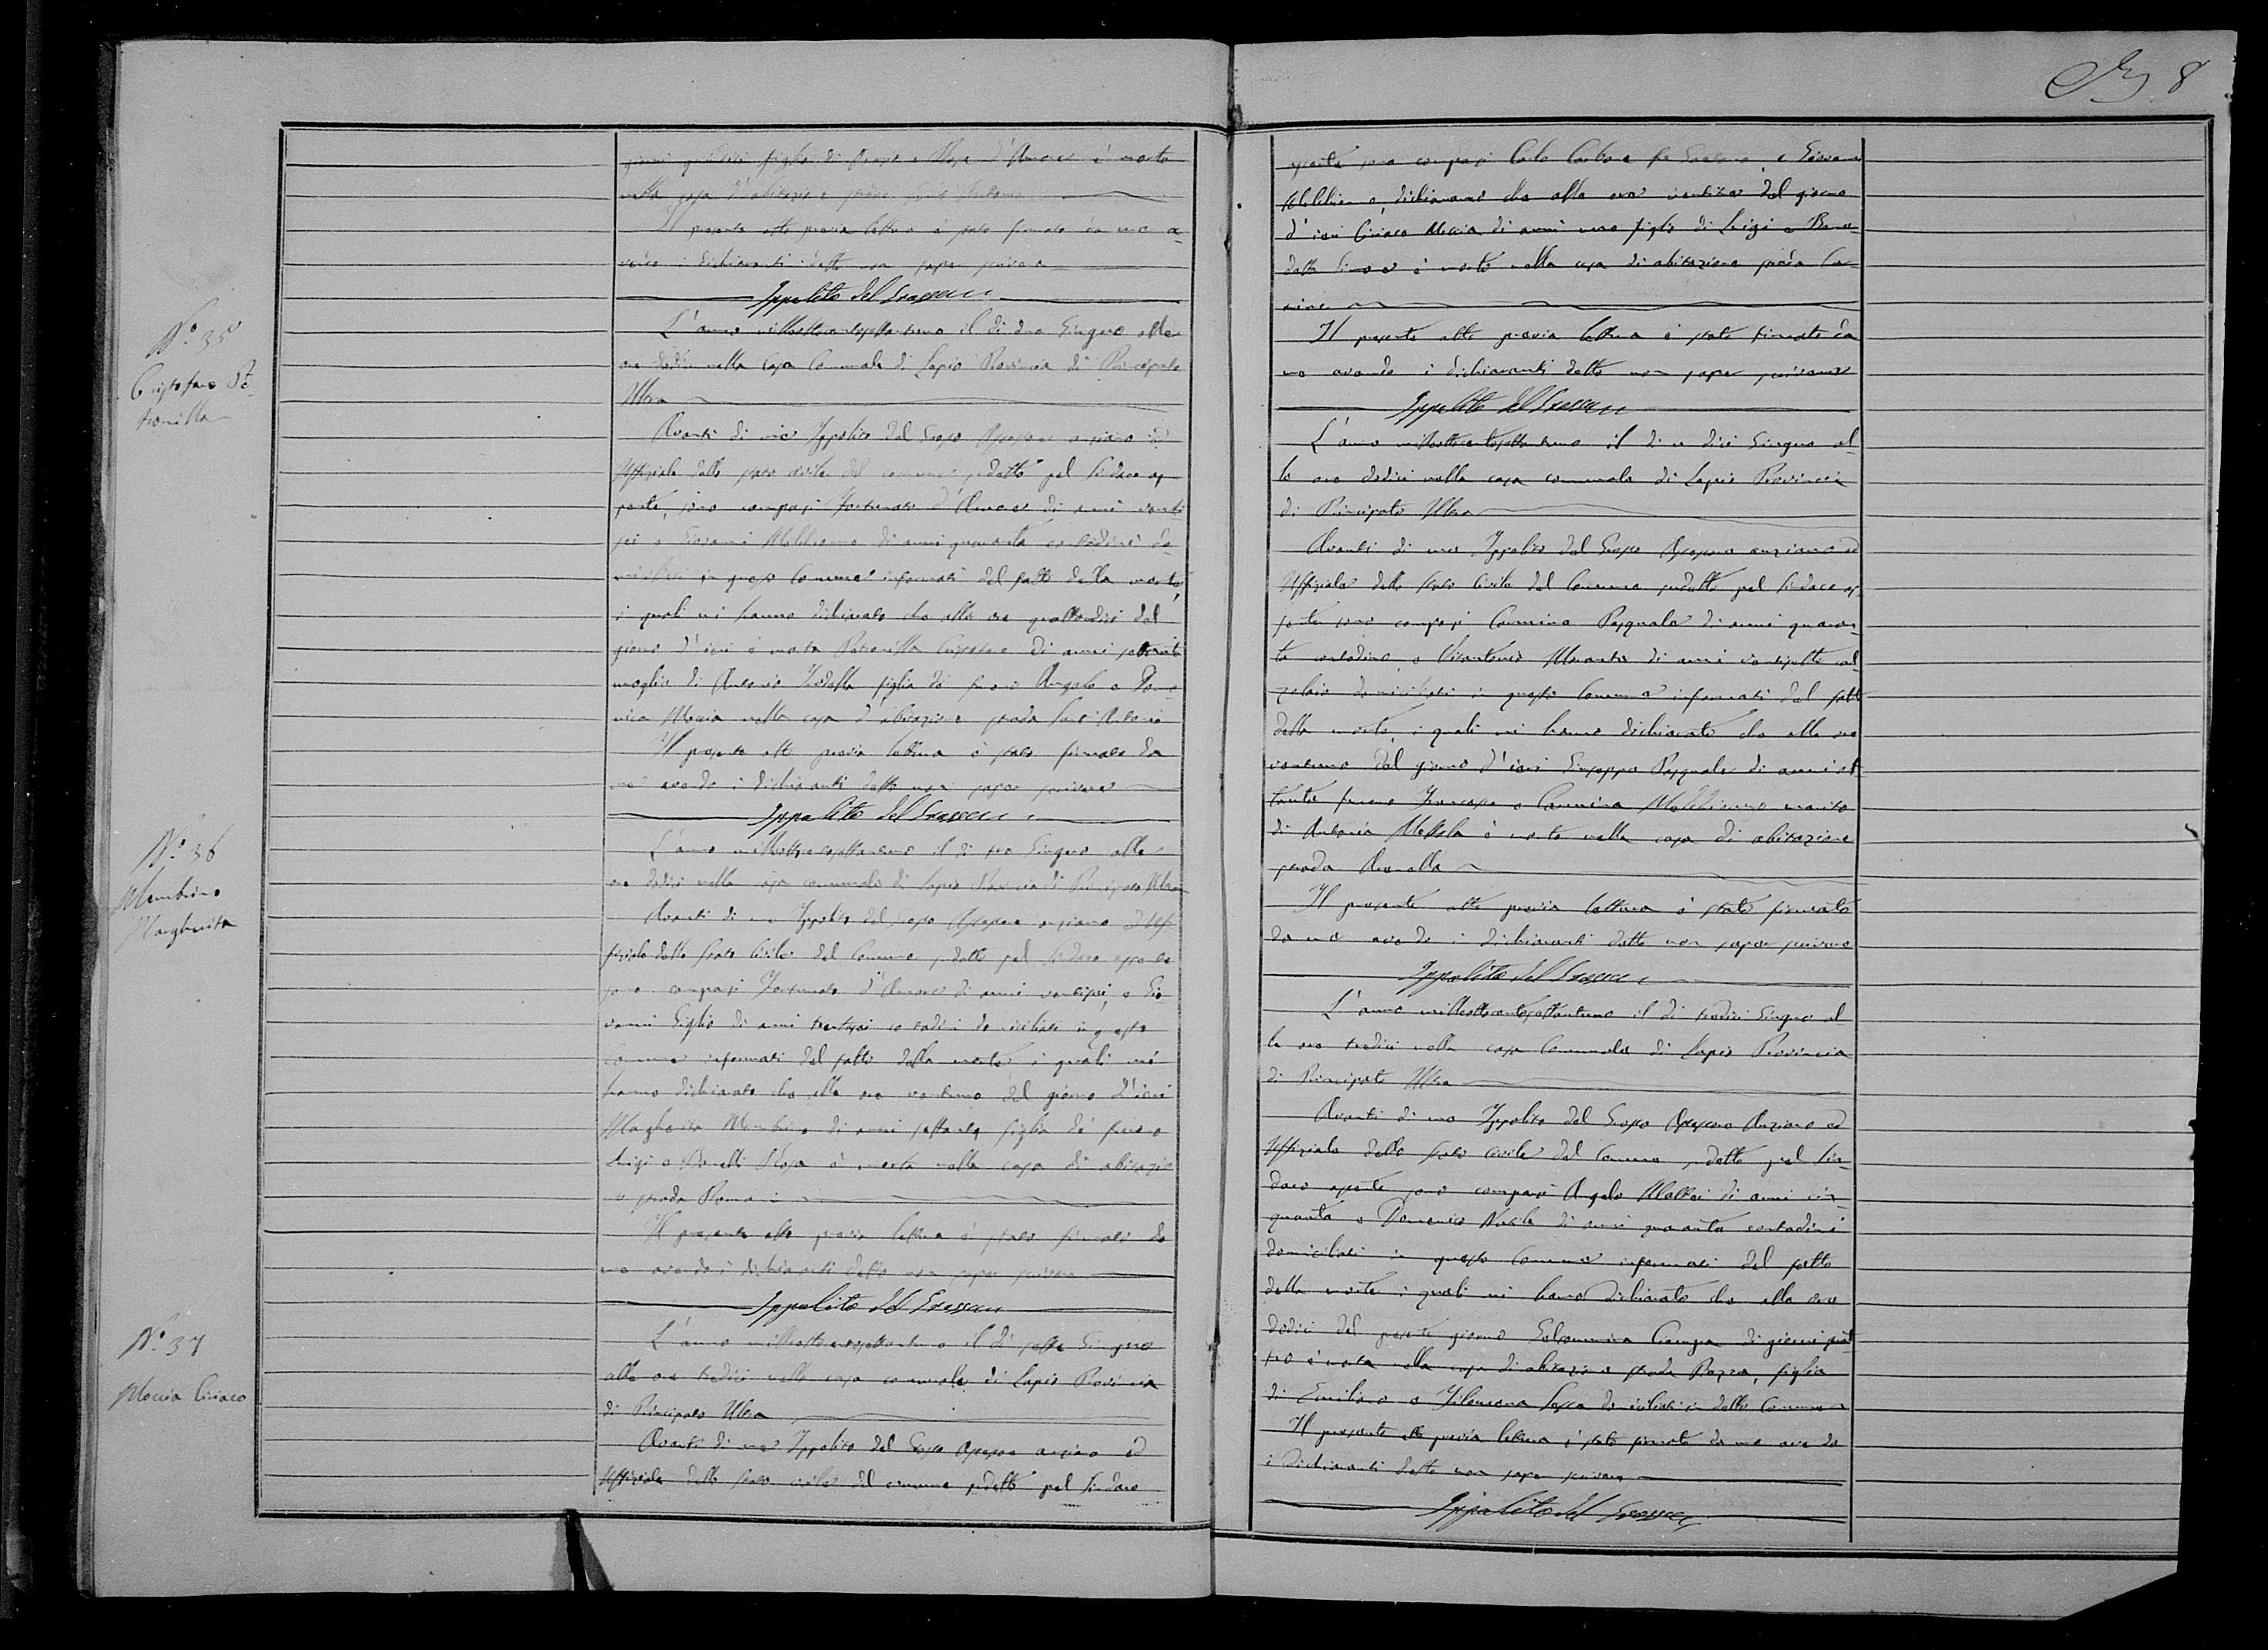 giorni quindici figlio di e Rosa d'Amore è morto
nella casa d'abitazione
Il presente atto previa lettura è stato firmato da me a-
vendo i dichiaranti detto non saper scrivere
Ippolito del Grosso
N.° 35
Cristofaro Pe-
tronilla
L'anno milleottocentosettantuno il di due Giugno alle
ore dodici nella Casa Comunale di Lapio Provincia di Principato
Ultra
Avanti di me Ippolito del Grosso Assessore anziano ed
Uffiziale dello stato civile del comune pel Sindaco as-
sente, sono comparsi Fortunato d'Amore di anni venti
sei e Giovanni di anni quaranta contadini do-
miciliati in questo Comune informati del fatto della morte,
i quali mi hanno dichiarato che alle ore quattordici del
giorno d'ieri è morta Petronilla Cristofaro di anni settanta
moglie di Antonio figlia di furono Angelo e Dome
nica Moccia nella casa d'abitazione strada Sant'Antonio
Il presente atto previa lettura è stato firmato da
me avendo i dichiaranti detto non saper scrivere
Ippolito del Grosso
N.° 36
Margherita
L'anno milleottocentosettantuno il di tre Giugno alle
ore dodici nella casa comunale di Lapio Provincia di Principato Ultra
Avanti di me Ippolito del Grosso Assessore anziano ed Uf
fiziale dello stato Civile del Comune pel Sindaco assente
sono comparsi Fortunato d'Amore di anni ventisei, e Gio
vanni Giglio di anni trentasei contadini domiciliati in questo
Comune informati del fatto della morte i quali mi
hanno dichiarato che alle ore ventuno del giorno d'ieri
Margherita di anni settanta figlia di furono
Luigi e Rosa è morta nella casa di abitazio
ne strada Romani
Il presente atto previa lettura è stato firmato da
me avendo i dichiaranti detto non saper scrivere
Ippolito del Grosso
N.° 37
Moccia Ciriaco
L'anno milleottocentosettantuno il di sette Giugno
alle ore tredici nella casa comunale di Lapio Provincia
di Principato Ultra
Avanti di me Ippolito del Grosso Assessore anziano ed
Uffiziale dello stato civile del comune pel Sindaco
8
assente sono comparsi Carlo Carbone fu Gaetano e Giovanni
dichiarano che alle ore del giorno
d'ieri Ciriaco Moccia di anni uno figlio di Luigi e Bene
detta è morto nella casa di abitazione strada
Il presente atto previa lettura è stato firmato da
me avendo i dichiaranti detto non saper scrivere
Ippolito del Grosso
L'anno milleottocentosettantuno il di Giugno al
le ore dodici nella casa comunale di Lapio Provincia
di Principato Ultra
Avanti di me Ippolito del Grosso Assessore anziano ed
Uffiziale dello stato Civile del Comune pel Sindaco as
sente sono comparsi Carmine Pasquale di anni quaran-
ta contadino, e di anni ventisette cal
zolaio domiciliati in questo Comune informati del fatto
della morte, i quali mi hanno dichiarato che alle ore
ventuno del giorno d'ieri Giuseppe Pasquale di anni ot
tanta furono e Carmina marito
di Antonia è morto nella casa di abitazione
strada
Il presente atto previa lettura è stato firmato
da me avendo i dichiaranti detto non saper scrivere
Ippolito del Grosso
L'anno milleottocentosettantuno il di tredici Giugno al
le ore tredici nella casa Comunale di Lapio Provincia
di Principato Ultra
Avanti di me Ippolito del Grosso Assessore Anziano ed
Uffiziale dello stato civile del Comune pel Sin-
daco assente sono comparsi Angelo di anni cin
quanta e Domenico di anni quaranta contadini
domiciliati in questo Comune informati del fatto
della morte i quali mi hanno dichiarato che alle ore
dodici del presente giorno Gelsomina Ciampa di giorni quat
tro è morta nella casa di abitazione strada Piazza, figlia
di Emiliano e Filomena domiciliati in detto Comune
Il presente atto previa lettura è stato firmato da me avendo
i dichiaranti detto non saper scrivere
Ippolito del Grosso